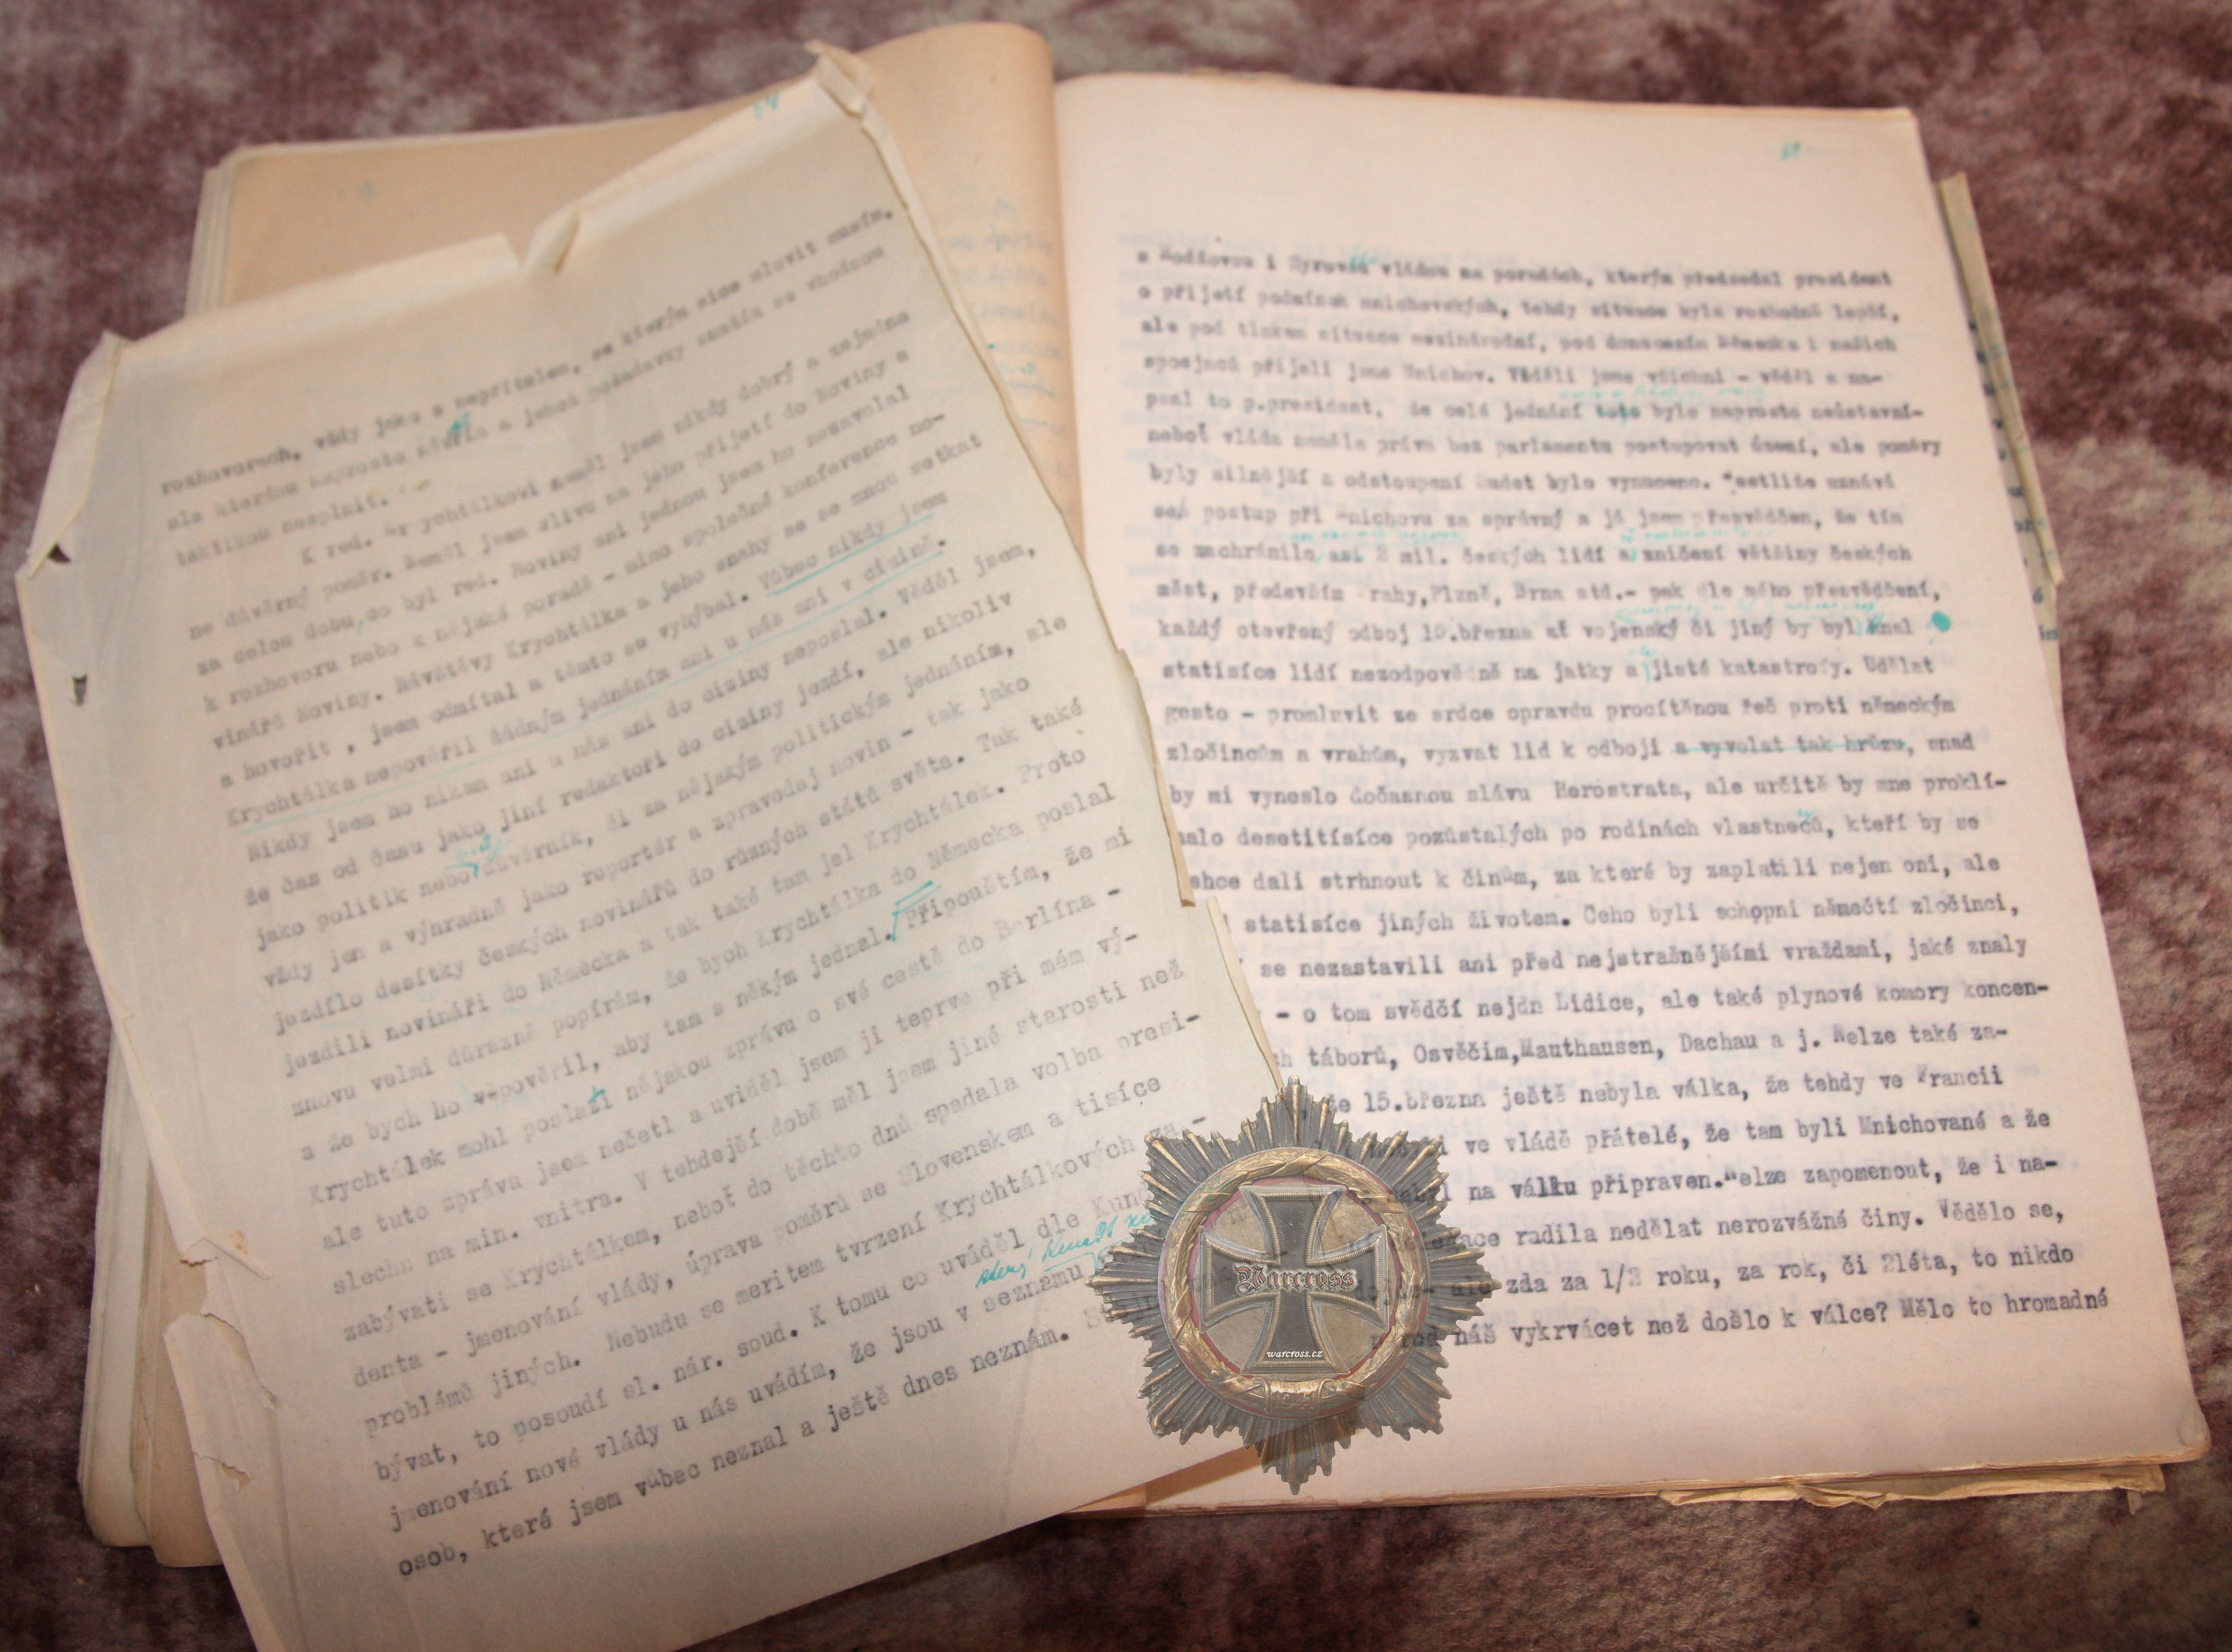 64
rozhovorech, vždy jako s nepřítelem, se kterým sice mluvit musím,
ale kterému naprosto nevěřím a jehož požadavky snažím se vhodnou
taktikou nesplnit.
K red. Krychtálkovi neměl jsem nikdy dobrý a nejméně
ne důvěrný poměr. Neměl jsem vlivu na jeho přijetí do Noviny a
za celou dobu, co byl red. Noviny ani jednou jsem ho nezavolal
k rozhovoru nebo k nějaké poradě - mimo společné konference no-
vinářů Noviny. Návštěvy Krychtálka a jeho snahy se se mnou setkat
a hovořit , jsem odmítal a těmto se vyhýbal. Vůbec nikdy jsem
Krychtálka nepověřil žádným jednáním ani u nás ani v cizině.
Nikdy jsem ho nikam ani u nás ani do ciziny neposlal. Věděl jsem,
že čas od času jako jiní redaktoři do ciziny jezdí, ale nikoliv
jako politik nebo důvěrník, či za nějakým politickým jednáním, ale
vždy jen a výhradně jako reportér a zpravodaj novin - tak jako
jezdílo desítky českých novinářů do různých států světa. Tak také
jezdili novináři do Německa a tak také tam jel Krychtálek. Proto
znovu velmi důrazně popírám, že bych Krychtálka do Německa poslal
a že bych ho pověřil, aby tam s někým jednal. Připouštím, že mi
Krychtálek mohl poslati nějakou zprávu o své cestě do Berlína -
ale tuto zprávu jsem nečetl a uviděl jsem ji teprve při mém vý-
slechu na min. vnitra. V tehdejší době měl jsem jiné starosti než
zabývati se Krychtálkem, neboť do těchto dnů spadala volba presi-
denta - jmenování vlády, úprava poměrů se Slovenskem a tisíce
problémů jiných. Nebudu se meritem tvrzení Krychtálkových za -
bývat, to posoudí sl. nár. soud. K tomu co uváděl dle Kund
jmenování nové vlády u nás uvádím, že jsou v seznamu
osob, které jsem vůbec neznal a ještě dnes neznám.
s Hodžovou i Syrového vládou na poradách, kterým předsedal president
o přijetí podmínek mnichovských, tehdy situace byla rozhodně lepší,
ale pod tlakem situace mezinárodní, pod donucením Německa i našich
spojenců přijali jsme Mnichov. Věděli jsme všichni - věděl a na-
psal to p.president, že celé jednání toto bylo naprosto neústavní-
neboť vláda neměla práva bez parlamentu postupovat území, ale poměry
byly silnější a odstoupení Sudet bylo vynuceno. Jestliže uznává
se postup při Mnichovu za správný a já jsem přesvědčen, že tím
se zachránilo asi 2 mil. českých lidí a zničení většiny českých
měst, především Prahy,Plzně, Brna atd.- pak dle mého přesvědčení,
každý otevřený odboj 15.března ať vojenský či jiný by byl hnal
statisíce lidí nezodpovědně na jatky a jisté katastrofy. Udělat
gesto - promluvit ze srdce opravdu procítěnou řeč proti německým
zločincům a vrahům, vyzvat lid k odboji a vyvolat tak hrůzu, snad
by mi vyneslo dočasnou slávu Herostrata, ale určitě by mne proklí-
nalo desetitísíce pozůstalých po rodinách vlastneců, kteří by se
lehce dali strhnout k činům, za které by zaplatili nejen oni, ale
statisíce jiných životem. Čeho byli schopni němečtí zločinci,
se nezastavili ani před nejstrašnějšími vraždami, jaké znaly
- o tom svědčí nejdn Lidice, ale také plynové komory koncen-
ch táborů, Osvěčim,Mauthausen, Dachau a j. Nelze také za-
že 15.března ještě nebyla válka, že tehdy ve Francii
i ve vládě přátelé, že tam byli Mnichované a že
nebyl na válku připraven.Nelze zapomenout, že i na-
radila nedělat nerozvážné činy. Vědělo se,
ale zda za 1/2 roku, za rok, či 2léta, to nikdo
národ náš vykrvácet než došlo k válce? Mělo to hromadné
Warcross
warcross.cz
1941